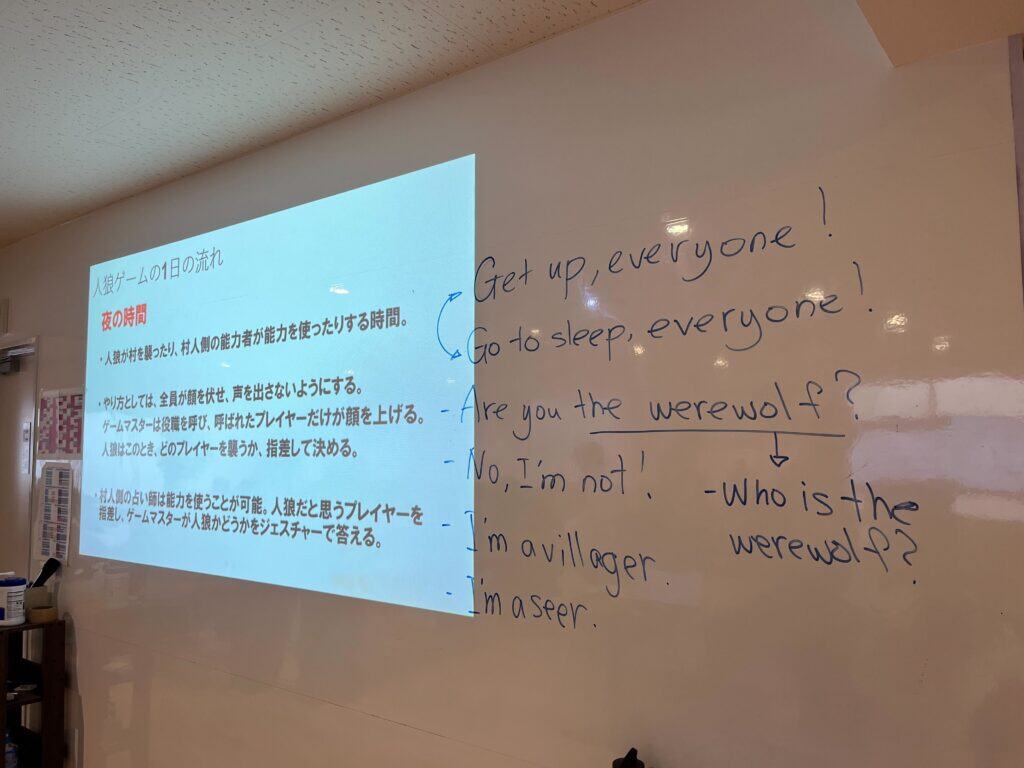 人狼ゲームの1日の流れ
夜の時間
・人狼が村を襲ったり、村人側の能力者が能力を使ったりする時間。
・やり方としては、全員が顔を伏せ、声を出さないようにする。
ゲームマスターは役職を呼び、呼ばれたプレイヤーだけが顔を上げる。
人狼はこのとき、どのプレイヤーを襲うか、指差して決める。
・村人側の占い師は能力を使うことが可能。人狼だと思うプレイヤーを
指差し、ゲームマスターが人狼かどうかをジェスチャーで答える。
Get up, everyone!
Go to sleep, everyone!
- Are you the werewolf?
- No, I'm not!
- I'm a villager.
- I'm a seer.
- Who is the
werewolf?